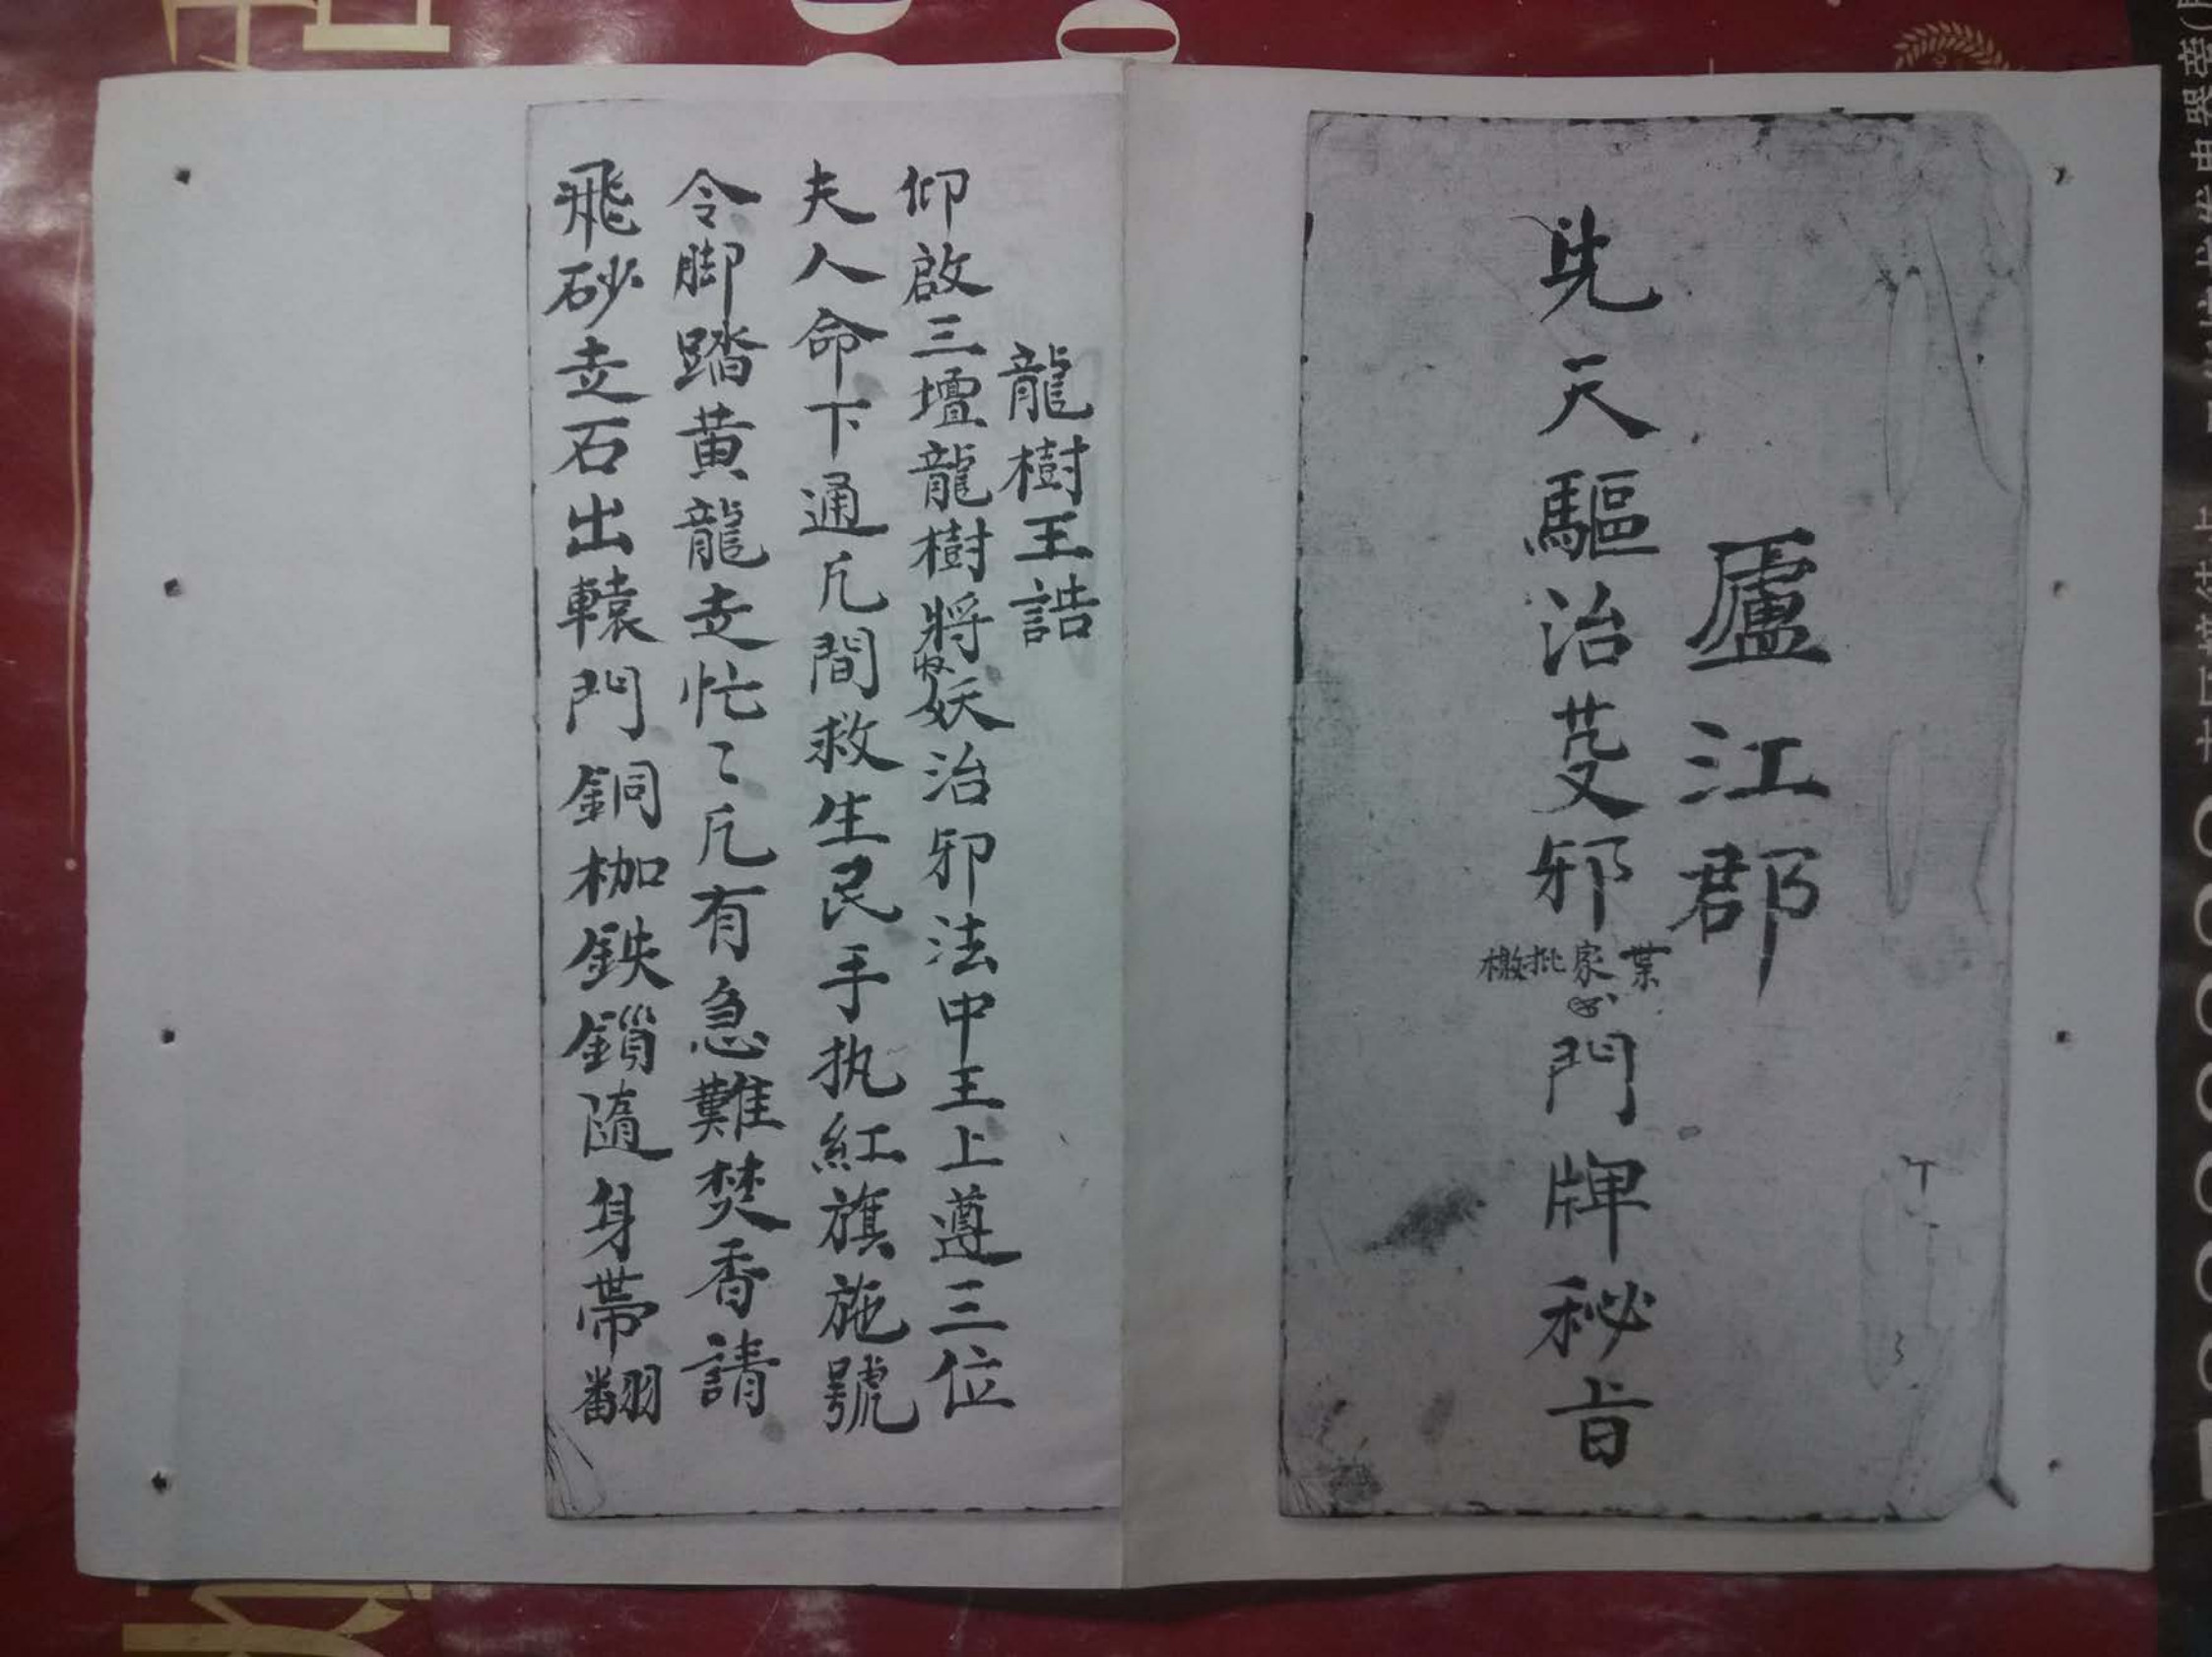 廬江郡
先天驅治芟邪
葉家批檄
門牌秘旨
龍樹王誥
仰啟三壇龍樹將收妖治邪法中王上遵三位
夫人命下通凢間救生民手执紅旗施號
令脚踏黄龍走忙〻凢有急難焚香請
飛砂走石出轅門銅枷鉄鎖隨身帶翻